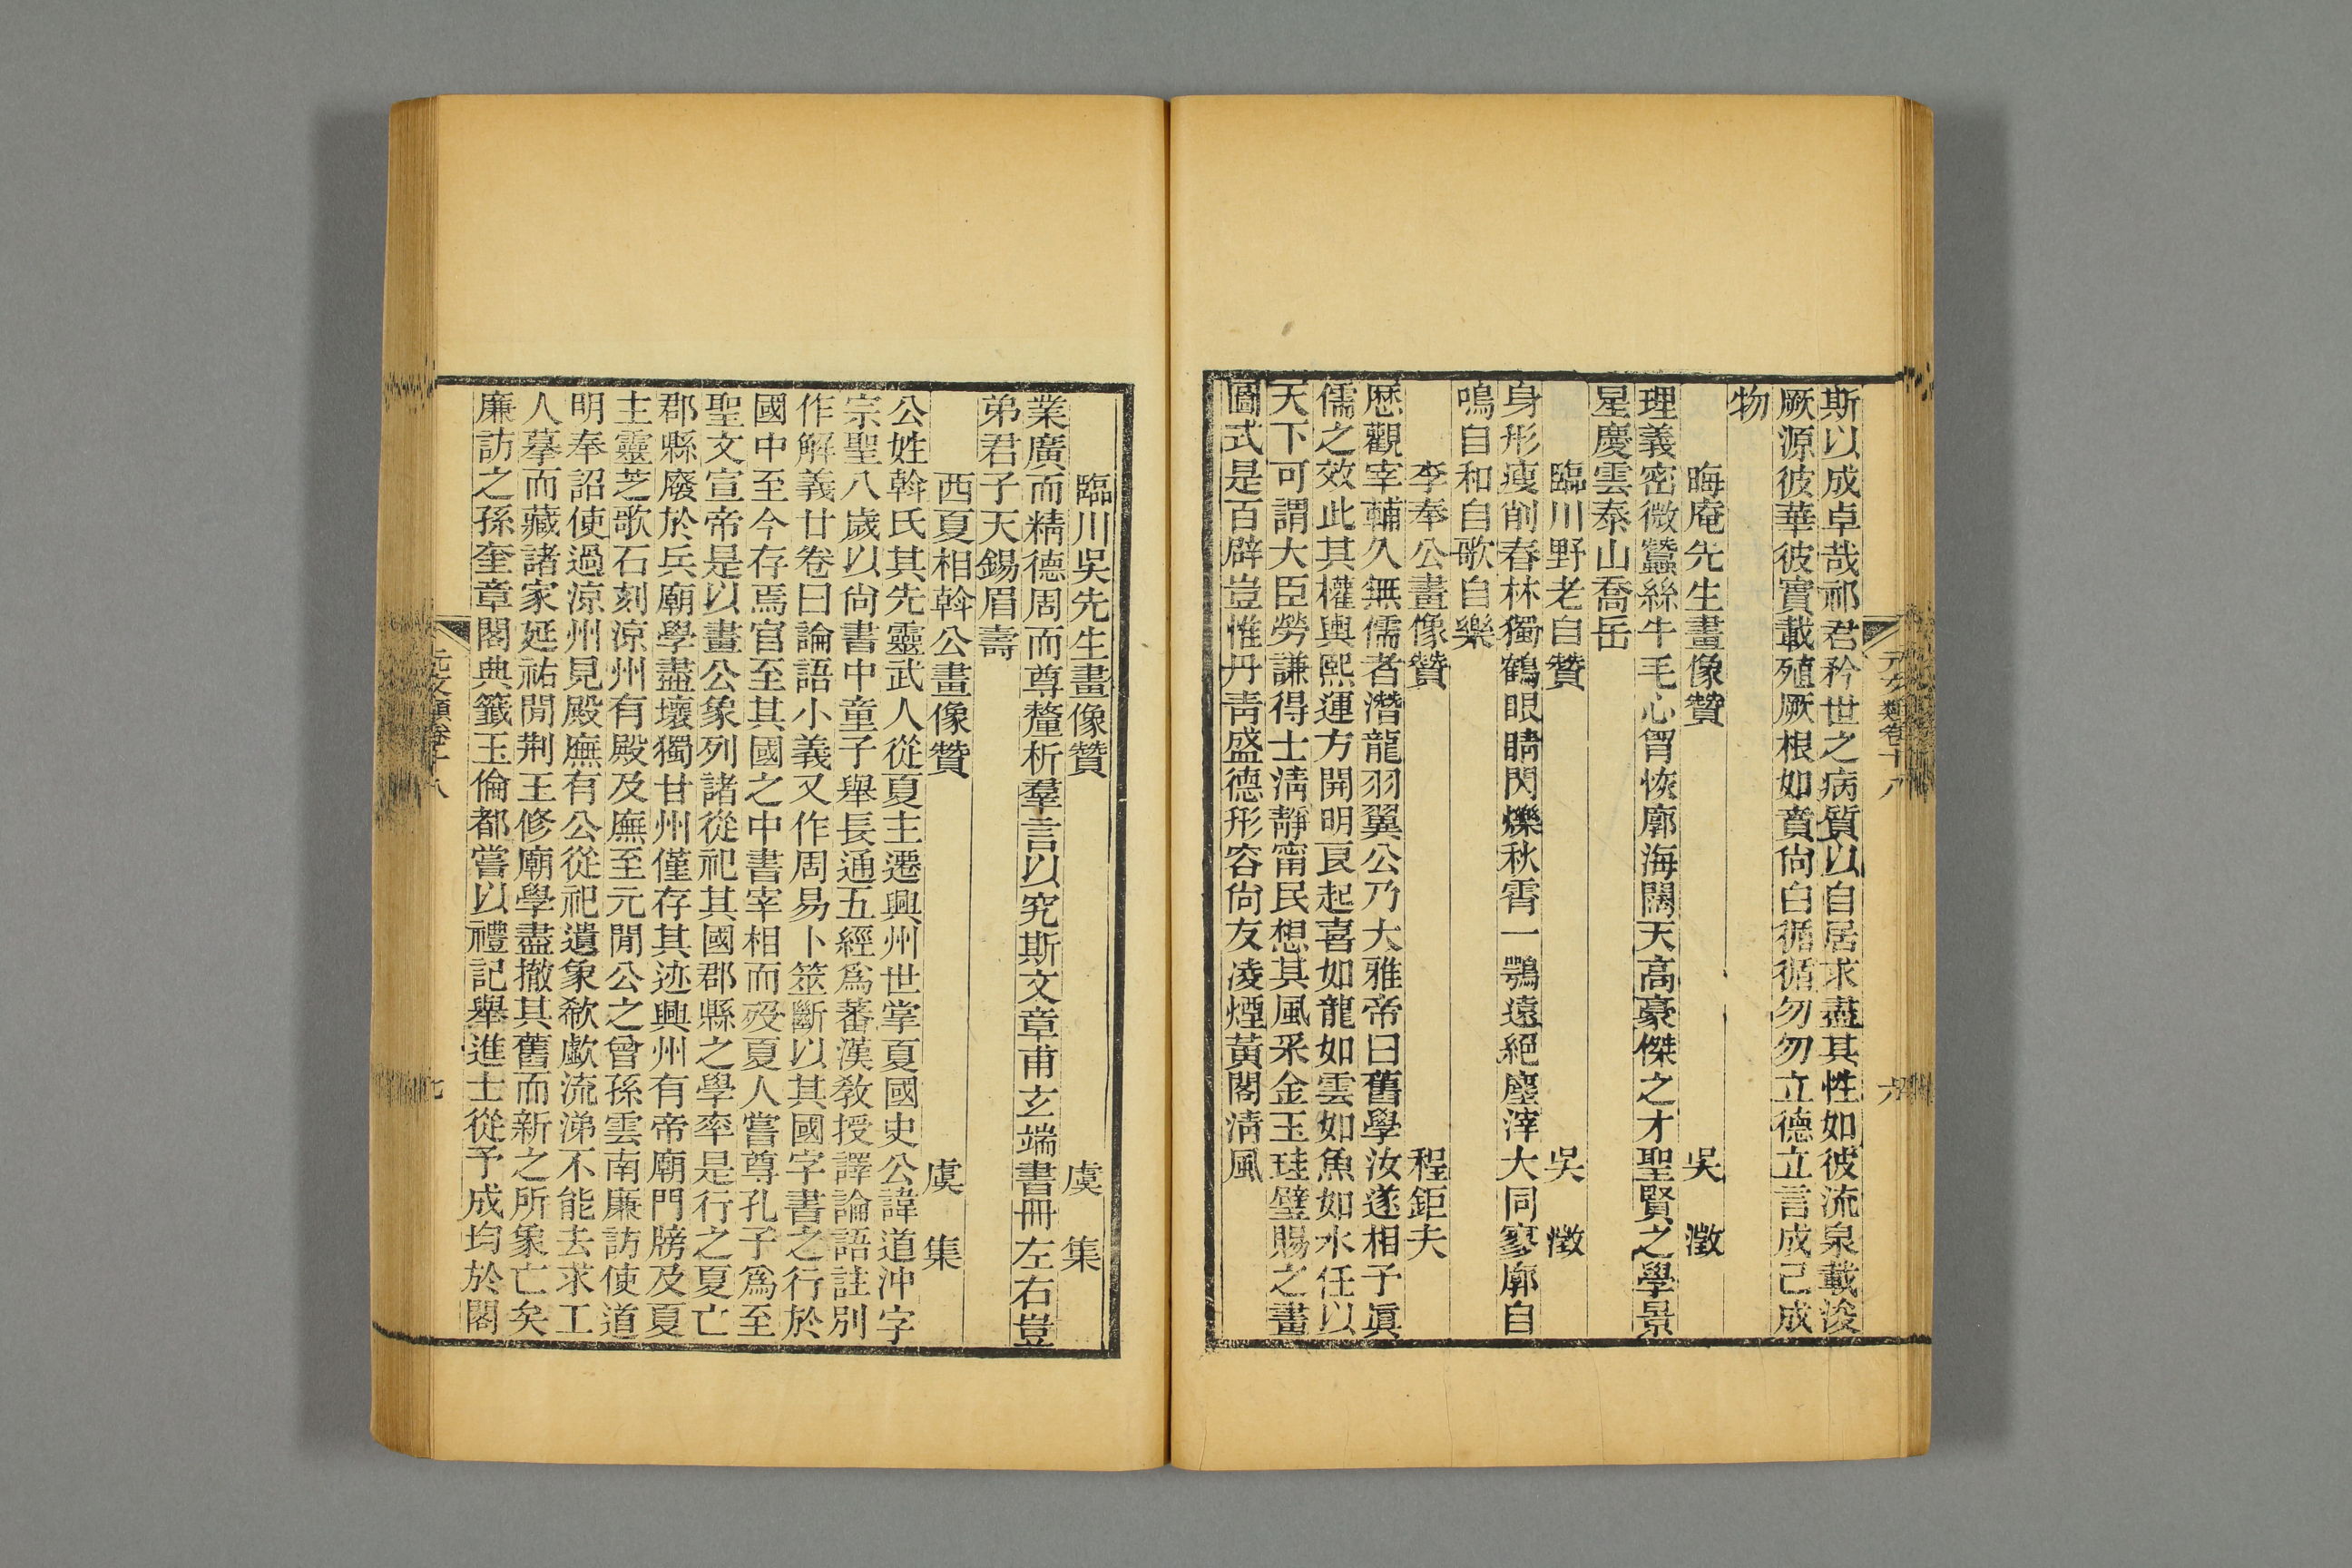 斯以成卓哉祁君矜世之病質以自居求盡其性如彼流泉載浚
厥源彼華彼實載殖厥根如賁尙白循循勿勿立德立言成己成
物
晦庵先生畫像贊　吳　澂
理義密微蠶絲牛毛心胷恢廓海闊天高豪傑之才聖賢之學景
星慶雲泰山喬岳
臨川野老自贊　吳　澂
身形瘦削春林獨鶴眼睛閃爍秋霄一鶚遠絕塵滓大同寥廓自
鳴自和自歌自樂
李奉公畫像贊　程鉅夫
歷觀宰輔久無儒者潛龍羽翼公乃大雅帝曰舊學汝遂相予眞
儒之效此其權輿熙運方開明良起喜如龍如雲如魚如水任以
天下可謂大臣勞謙得士淸靜甯民想其風采金玉珪璧賜之畫
圖式是百辟豈惟丹靑盛德形容尙友凌煙黃閣淸風
元文類卷十八　六
臨川吳先生畫像贊　虞　集
業廣而精德周而尊釐析羣言以究斯文章甫玄端書冊左右豈
弟君子天錫眉壽
西夏相斡公畫像贊　虞　集
公姓斡氏其先靈武人從夏主遷興州世掌夏國史公諱道沖字
宗聖八歲以尙書中童子舉長通五經爲蕃漢敎授譯論語註別
作解義廿卷曰論語小義又作周易卜筮斷以其國字書之行於
國中至今存焉官至其國之中書宰相而歿夏人嘗尊孔子爲至
聖文宣帝是以畫公象列諸從祀其國郡縣之學率是行之夏亡
郡縣廢於兵廟學盡壞獨甘州僅存其迹興州有帝廟門牓及夏
主靈芝歌石刻涼州有殿及廡至元閒公之曾孫雲南廉訪使道
明奉詔使過涼州見殿廡有公從祀遺象欷歔流涕不能去求工
人摹而藏諸家延祐閒荆王修廟學盡撤其舊而新之所象亡矣
廉訪之孫奎章閣典籤玉倫都嘗以禮記舉進士從予成均於閣
元文類卷十八　七